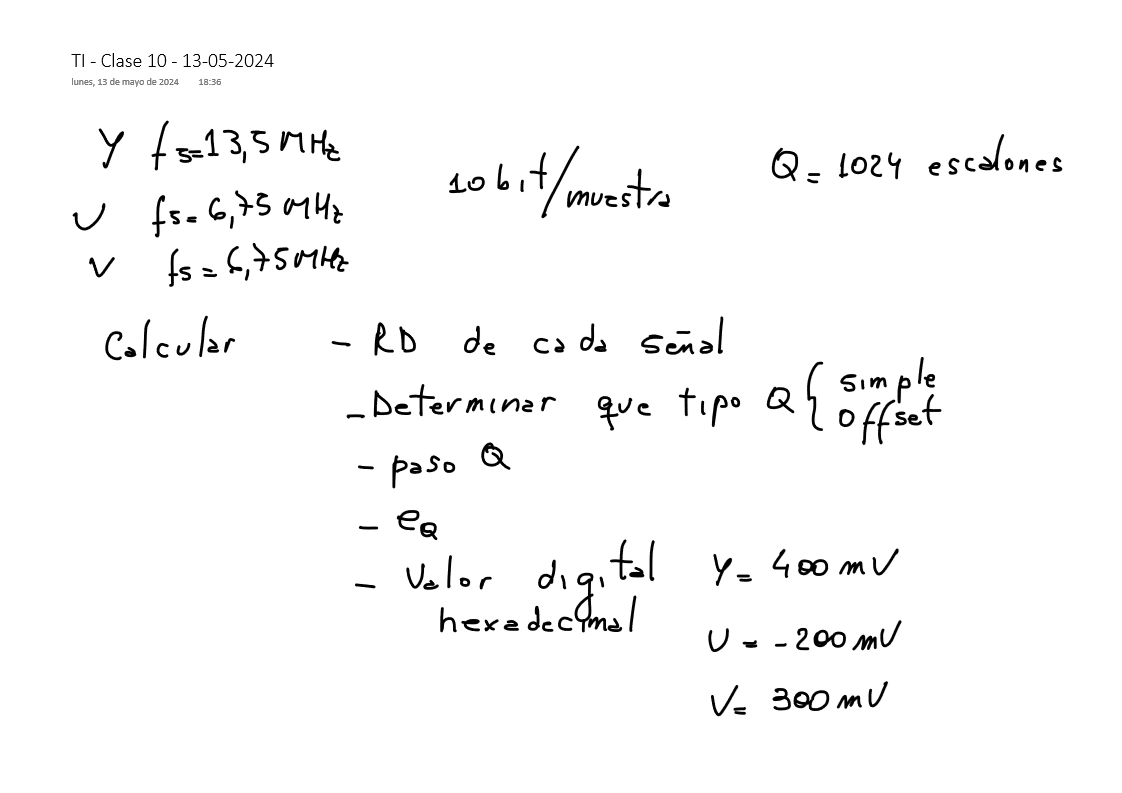 TI - Clase 10 - 13-05-2024
lunes, 13 de mayo de 2024 18:36
Y fs=13,5 MHz
10 bit/muestra
Q = 1024 escalones
U fs = 6,75 MHz
V fs = 6,75 MHz
Calcular - RD de cada señal
- Determinar que tipo Q { simple
offset
- paso Q
- eQ
- Valor digital
hexadecimal
Y = 400 mV
U = -200 mV
V = 300 mV